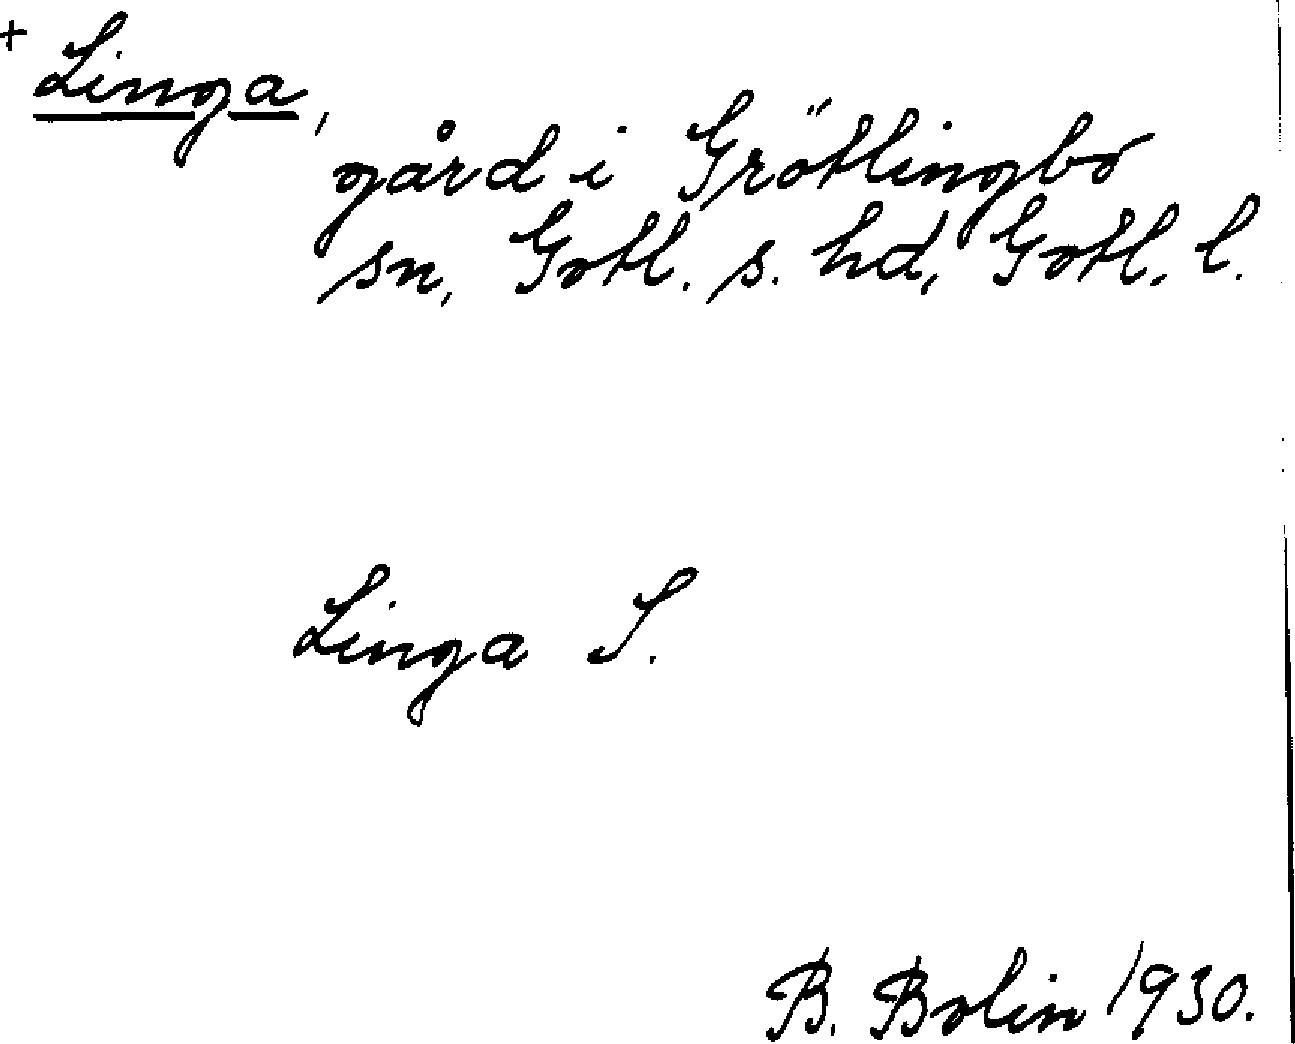 + Linga,
gård i Grötlingbo
sn, Gotl. s. hd, Gotl. l.
Linga S.
B. Bolin 1930.